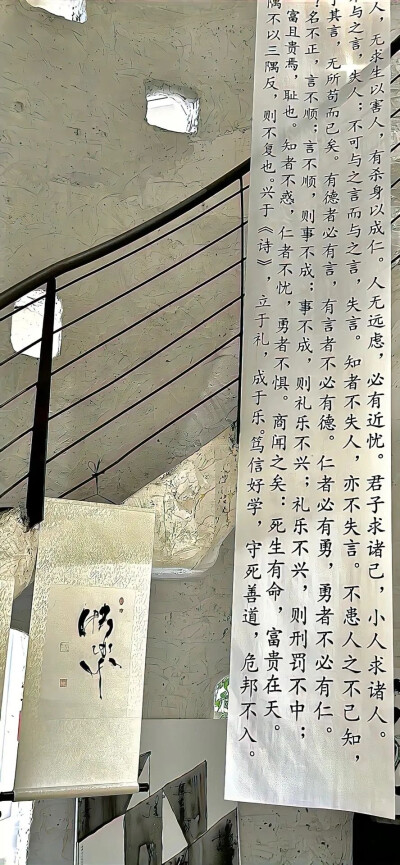 人，无求生以害人，有杀身以成仁。人无远虑，必有近忧。君子求诸己，小人求诸人。
与之言，失人；不可与之言而与之言，失言。知者不失人，亦不失言。不患人之不己知，
其言，无所苟而已矣。有德者必有言，有言者不必有德。仁者必有勇，勇者不必有仁。
名不正，言不顺；言不顺，则事不成；事不成，则礼乐不兴；礼乐不兴，则刑罚不中；
富且贵焉，耻也。知者不惑，仁者不忧，勇者不惧。商闻之矣：死生有命，富贵在天。
隅不以三隅反，则不复也。兴于《诗》，立于礼，成于乐。笃信好学，守死善道，危邦不入。